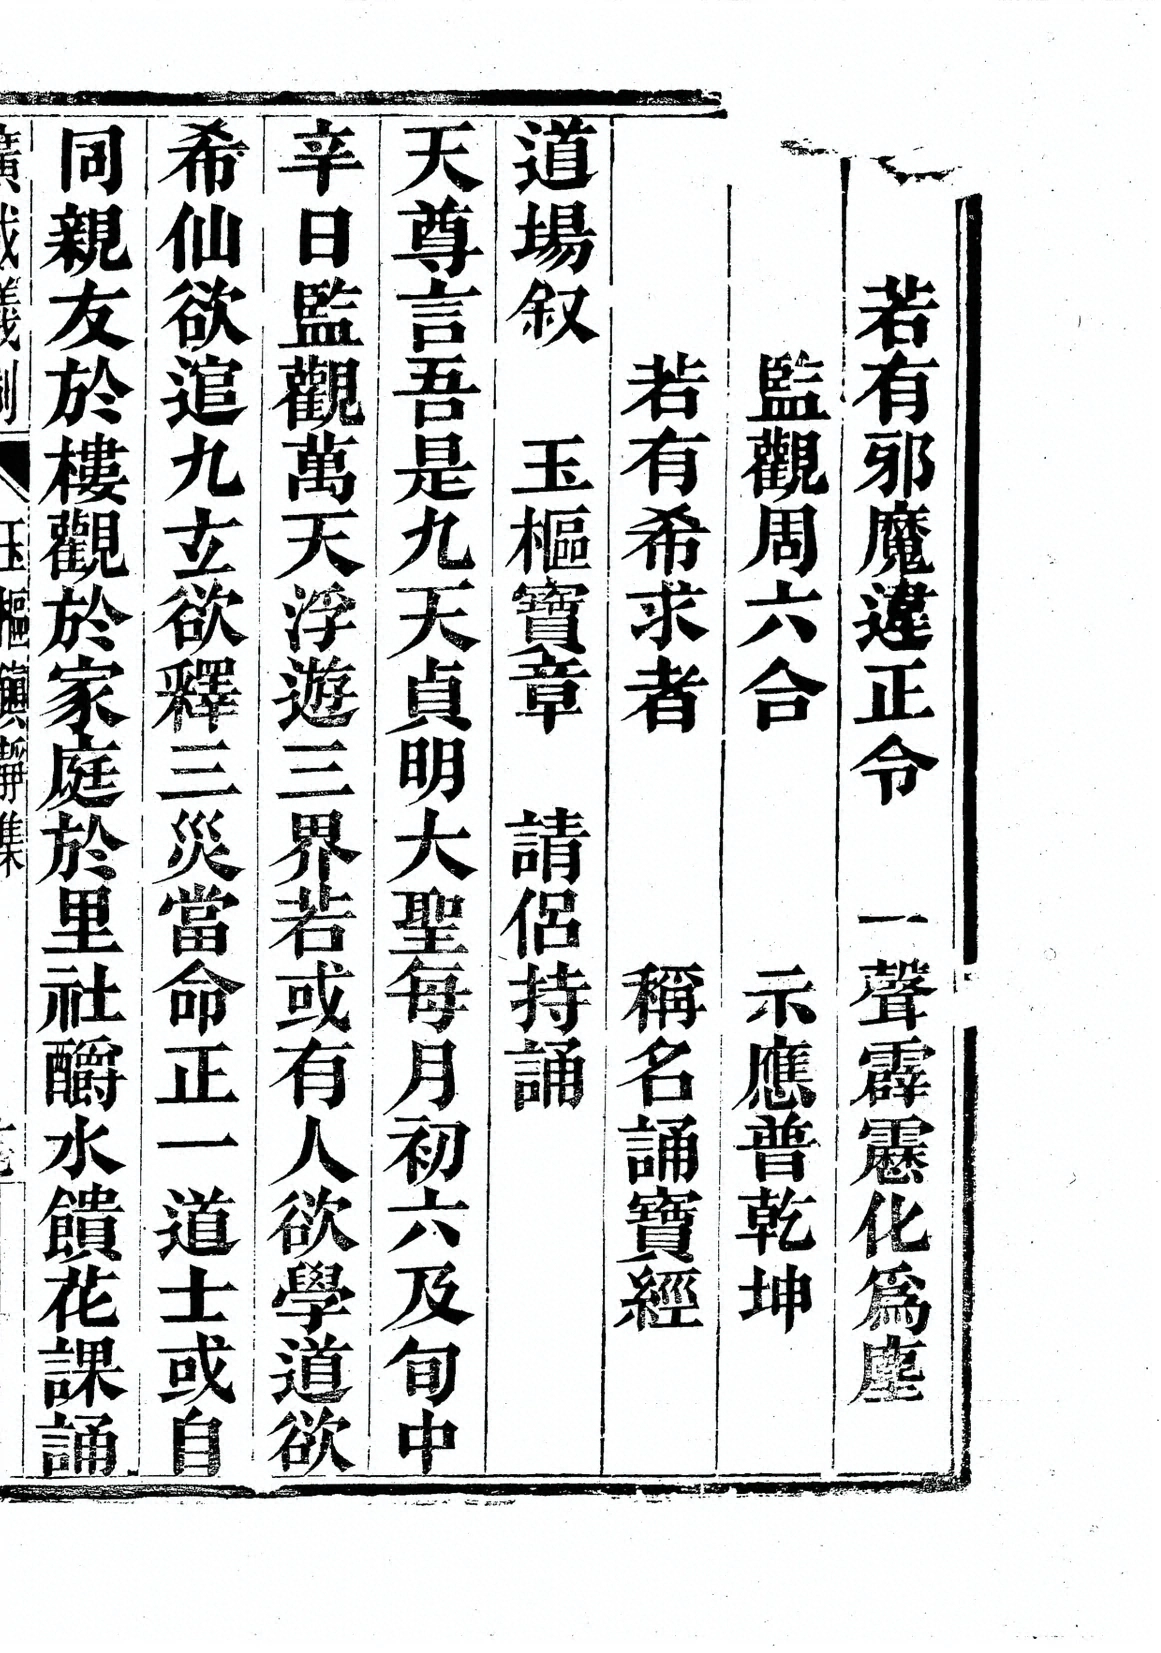 若有邪魔違正令　一聲霹靂化為塵
監觀周六合　示應普乾坤
若有希求者　稱名誦寶經
道場叙　玉樞寶章　請侶持誦
天尊言吾是九天貞明大聖每月初六及旬中
辛日監觀萬天浮遊三界若或有人欲學道欲
希仙欲逭九玄欲釋三災當命正一道士或自
同親友於樓觀於家庭於里社酹水饋花課誦
廣成儀制　玉樞鎮靜集